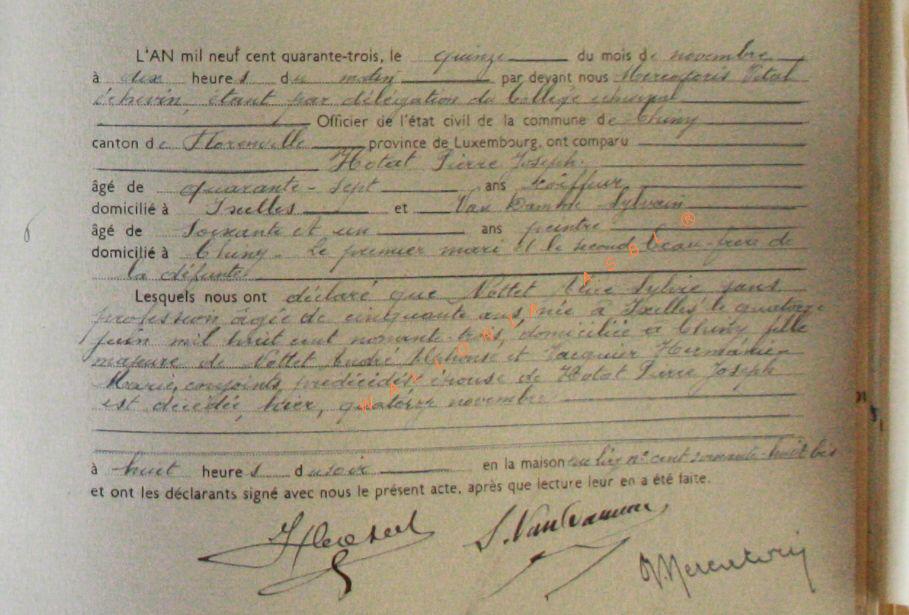 L'AN mil neuf cent quarante-trois, le quinze du mois de novembre
à dix heures du matin par devant nous Vital
échevin, étant par délégation du Collège échevinal
Officier de l'état civil de la commune de Chiny
canton de Florenville province de Luxembourg, ont comparu
Hotat Pierre Joseph
âgé de quarante-sept ans coiffeur
domicilié à Ixelles et Van Damme Sylvain
âgé de soixante et un ans peintre
domicilié à Chiny. Le premier mari et le second beau-frère de
la défunte
Lesquels nous ont déclaré que Nottet Alice Sylvie sans
profession âgée de cinquante ans, née à Ixelles le quatorze
juin mil huit cent nonante-trois, domiciliée à Chiny fille
majeure de Nottet André Alphonse et Jacquier Herménie
Marie, conjoints, prédécédés épouse de Hotat Pierre Joseph
est décédée, hier, quatorze novembre
à huit heures du soir en la maison n° cent soixante-huit bis
et ont les déclarants signé avec nous le présent acte, après que lecture leur en a été faite.
S. Van Damme